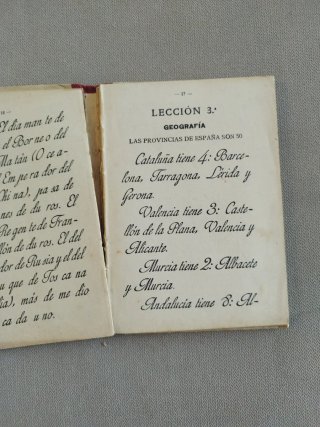 — 16 —
El dia man te de
el Bor ne o del
Ma tán (O ce a-
el Em pe ra dor del
pa sa de
nes de du ros. El
Re gen te de Fran-
llón de du ros. El del
dor de Ru sia y el del
u que de Tos ca na
más de me dio
ca da u no.
— 17 —
LECCIÓN 3.ª
GEOGRAFÍA
LAS PROVINCIAS DE ESPAÑA SON 50
Cataluña tiene 4: Barce-
lona, Tarragona, Lérida y
Gerona.
Valencia tiene 3: Caste-
llón de la Plana, Valencia y
Alicante.
Murcia tiene 2: Albacete
y Murcia.
Andalucía tiene 8: Al-